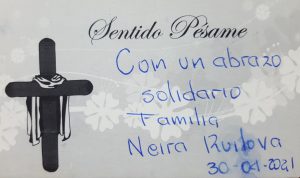 Sentido Pésame
Con un abrazo
solidario
Familia
Neira Ruilova
30-01-2021